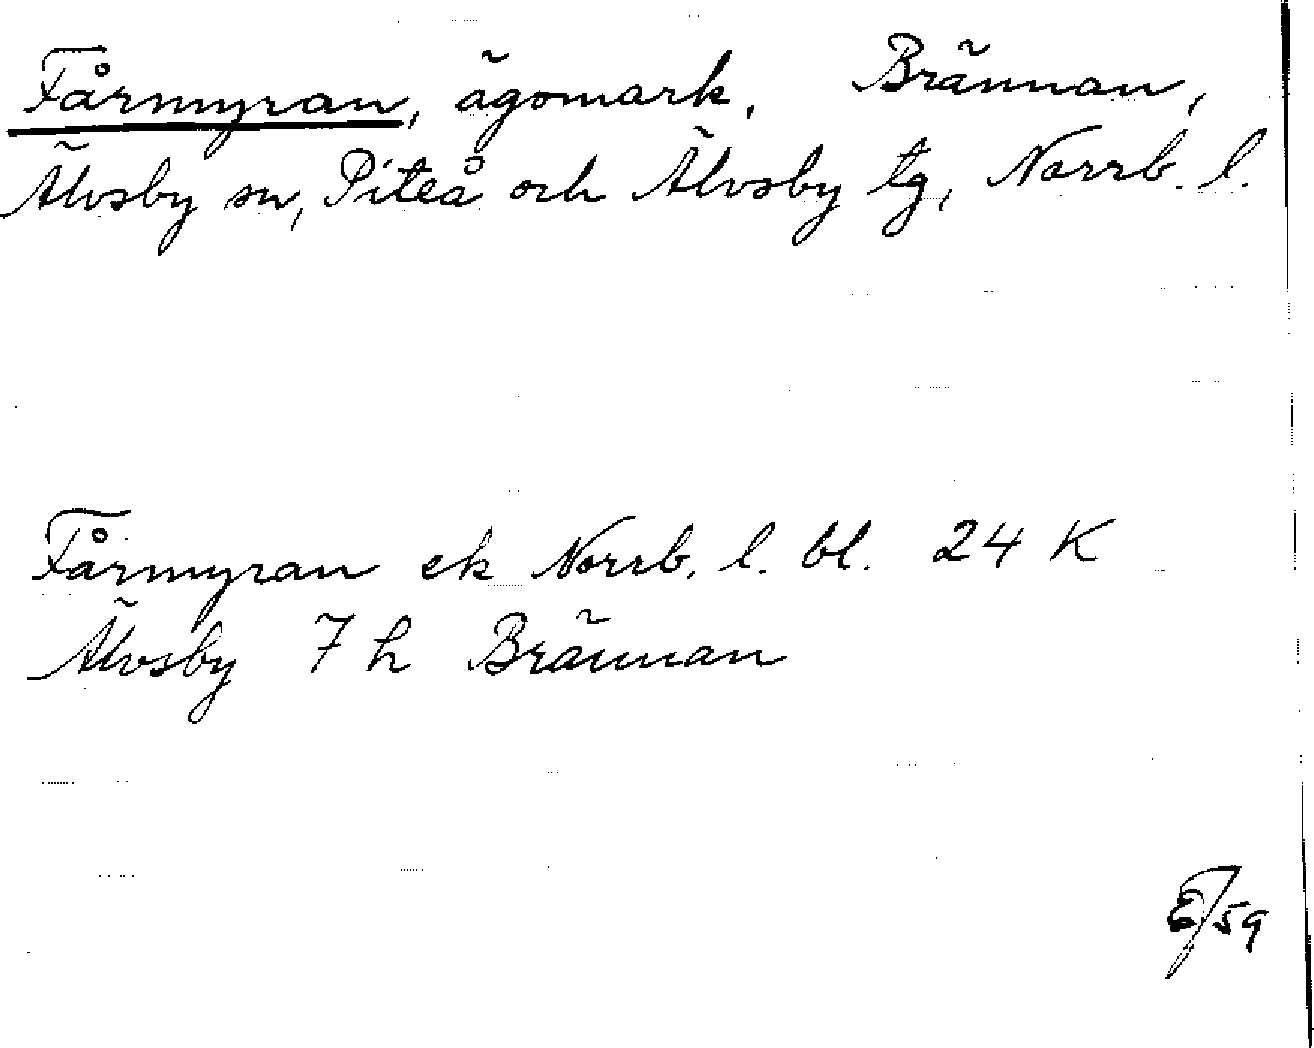 Fårmyran, ägomark, Brännan,
Älvsby sn, Piteå och Älvsby tg, Norrb. l.
Fårmyran ek Norrb. l. bl. 24 K
Älvsby 7 h Brännan
/59